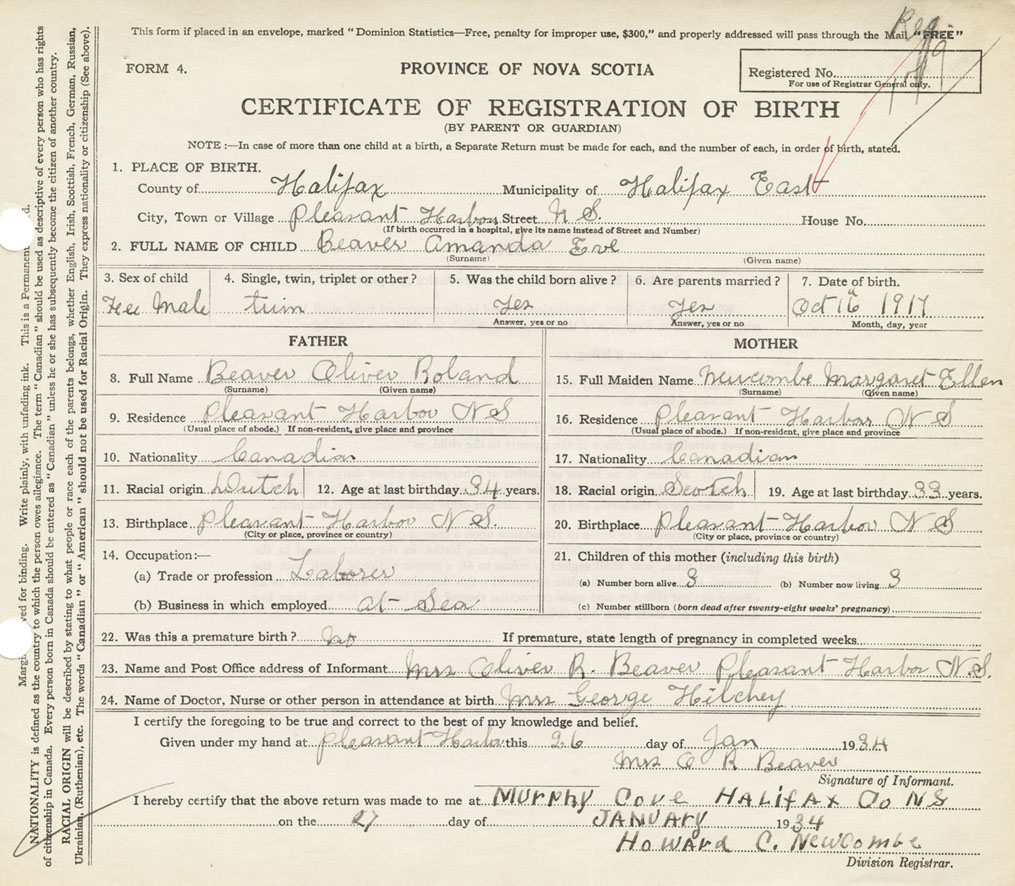 This form if placed in an envelope, marked "Dominion Statistics—Free, penalty for improper use, $300," and properly addressed will pass through the Mail "FREE"
FORM 4.
PROVINCE OF NOVA SCOTIA
Registered No.
For use of Registrar General only.
CERTIFICATE OF REGISTRATION OF BIRTH
(BY PARENT OR GUARDIAN)
NOTE :—In case of more than one child at a birth, a Separate Return must be made for each, and the number of each, in order of birth, stated.
1. PLACE OF BIRTH.
County of Halifax Municipality of Halifax East
City, Town or Village Pleasant Harbor Street N S. House No.
(If birth occurred in a hospital, give its name instead of Street and Number)
2. FULL NAME OF CHILD Beaver Amanda Eve
(Surname) (Given name)
3. Sex of child 4. Single, twin, triplet or other ? 5. Was the child born alive ? 6. Are parents married ? 7. Date of birth.
Fee Male twin Yes Yes Oct 16 1917
Answer, yes or no Answer, yes or no Month, day, year
FATHER MOTHER
8. Full Name Beaver Oliver Roland
(Surname) (Given name)
15. Full Maiden Name Newcombe Margaret Ellen
(Surname) (Given name)
9. Residence Pleasant Harbor N S
(Usual place of abode.) If non-resident, give place and province
16. Residence Pleasant Harbor N S
(Usual place of abode.) If non-resident, give place and province
10. Nationality Canadian
17. Nationality Canadian
11. Racial origin Dutch 12. Age at last birthday 34 years.
18. Racial origin Scotch 19. Age at last birthday 33 years.
13. Birthplace Pleasant Harbor N S.
(City or place, province or country)
20. Birthplace Pleasant Harbor N S
(City or place, province or country)
14. Occupation:—
(a) Trade or profession Laborer
(b) Business in which employed at Sea
21. Children of this mother (including this birth)
(a) Number born alive 3 (b) Number now living 3
(c) Number stillborn (born dead after twenty-eight weeks' pregnancy)
22. Was this a premature birth ? no If premature, state length of pregnancy in completed weeks
23. Name and Post Office address of Informant Mrs Oliver R. Beaver Pleasant Harbor N.S.
24. Name of Doctor, Nurse or other person in attendance at birth Mrs George Hilchey
I certify the foregoing to be true and correct to the best of my knowledge and belief.
Given under my hand at Pleasant Harbor this 26 day of Jan 1934
Mrs O R Beaver
Signature of Informant.
I hereby certify that the above return was made to me at MURPHY COVE HALIFAX CO NS
on the 27 day of JANUARY 1934
HOWARD C. NEWCOMBE
Division Registrar.
ved for binding. Write plainly, with unfading ink. This is a Permanent
NATIONALITY is defined as the country to which the person owes allegiance. The term "Canadian" should be used as descriptive of every person who has rights
of citizenship in Canada. Every person born in Canada should be entered as "Canadian" unless he or she has subsequently become the citizen of another country.
RACIAL ORIGIN will be described by stating to what people or race each of the parents belongs, whether English, Irish, Scottish, French, German, Russian,
Ukrainian, (Ruthenian), etc. The words "Canadian" or "American" should not be used for Racial Origin. They express nationality or citizenship (See above).